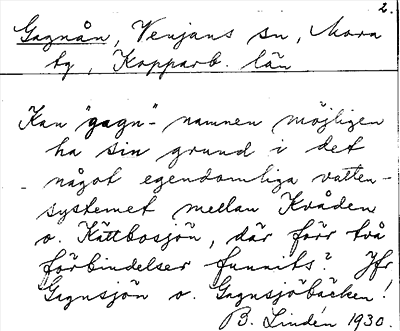 2.
Gagnån, Venjans sn, Mora
tg, Kopparb. län
Kan "gagn"- namnen möjligen
ha sin grund i det
något egendomliga vatten-
systemet mellan Kvåden
o. Kättbosjön, där förr två
förbindelser funnits? Jfr
Gagnsjön o. Gagnsjöbäcken!
B. Lindén 1930.